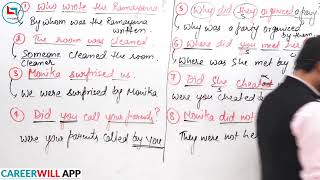 ① Who wrote the Ramayana?
By whom was the Ramayana
written.
② The room was cleaned
Someone cleaned the room.
cleaner
③ Monika surprised us.
We were surprised by Monika
④ Did you call your parents?
Were your parents called by you
⑤ Why did they organized
Why was a party organized
by them
⑥ Where did you meet her
Where was She met by
⑦ Did She cheat
Were you cheated
⑧ Monika did not
They were not he
CAREERWILL APP